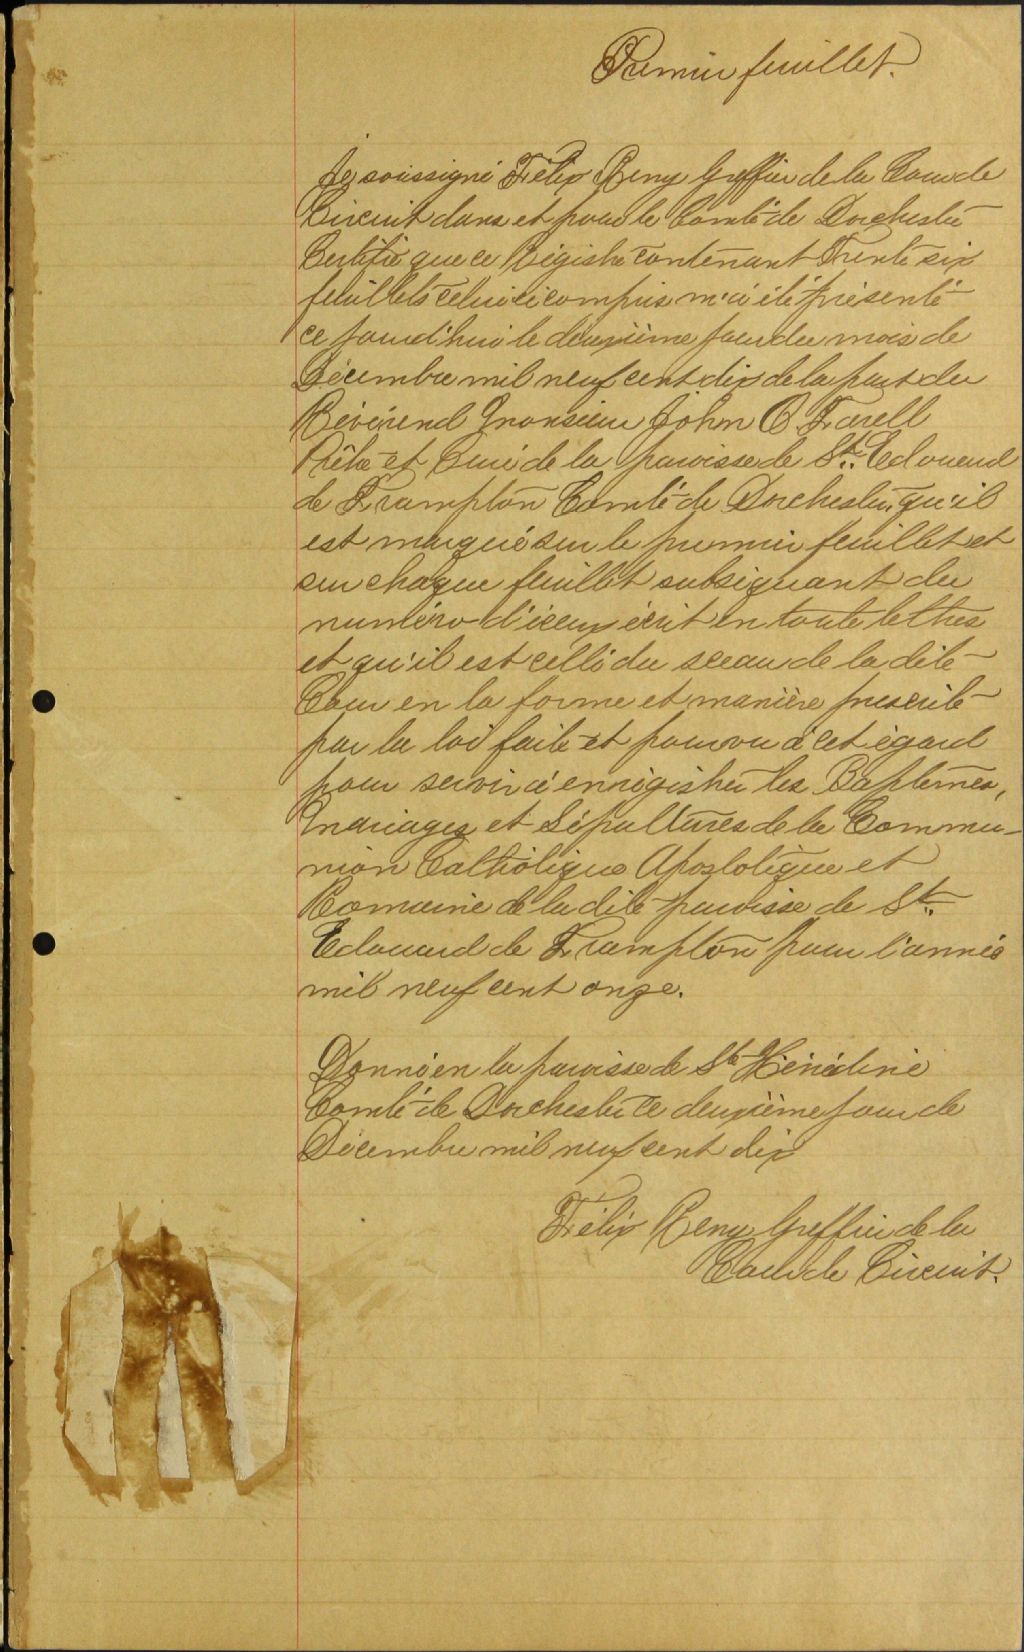 Premier feuillet.
Je soussigné Félix Remy Greffier de la Cour de
Circuit dans et pour le Comté de Dorchester
Certifie que ce Régistre contenant Trente six
feuillets celui ici compris m'a été présenté
ce jourd'hui le deuxième jour du mois de
Décembre mil neuf cent dix de la part du
Révérend Monsieur John O Farell
Prêtre et Curé de la paroisse de St. Edouard
de Frampton Comté de Dorchester, qu'il
est marqué sur le premier feuillet et
sur chaque feuillet subséquant du
numéro d'iceux écrit en toute lettres
et qu'il est cellé du sceau de la dite
Cour en la forme et manière prescrite
par la loi faite et pourvu à cet égard
pour servir à enrégistrer les Baptêmes,
Mariages et Sépultures de la Commu-
nion Catholique Apostolique et
Romaine de la dite paroisse de St.
Edouard de Frampton pour l'année
mil neuf cent onze.
Donné en la paroisse de Ste Hénédine
Comté de Dorchester ce deuxième jour de
Décembre mil neuf cent dix
Félix Remy Greffier de la
Cour de Circuit.